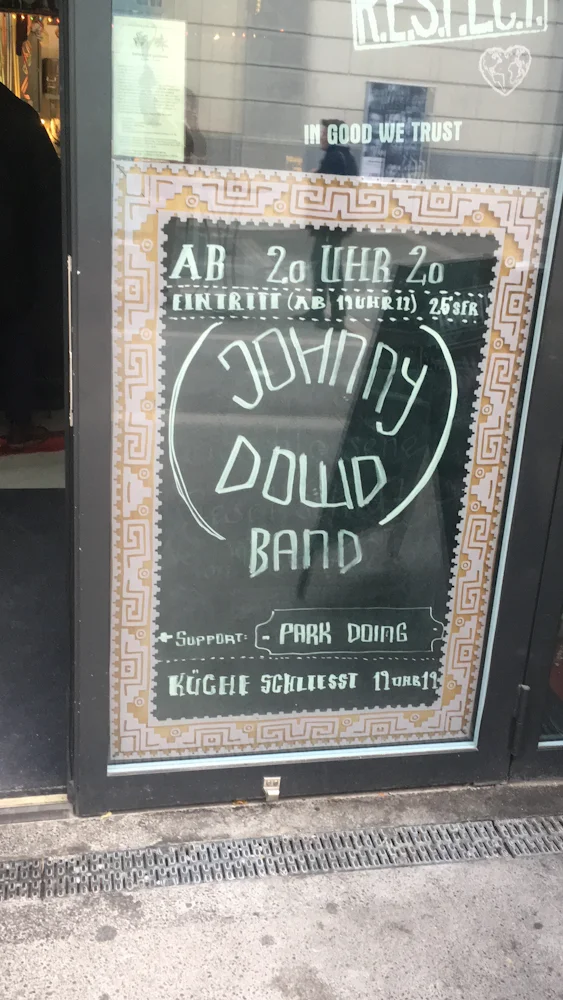 R.E.S.P.E.C.T.
IN GOOD WE TRUST
AB 20 UHR 20
EINTRITT (AB 19UHR12) 25 SFR
JOHNNY
DOWD
BAND
+ SUPPORT: - PARK DOING
KÜCHE SCHLIESST 19UHR19